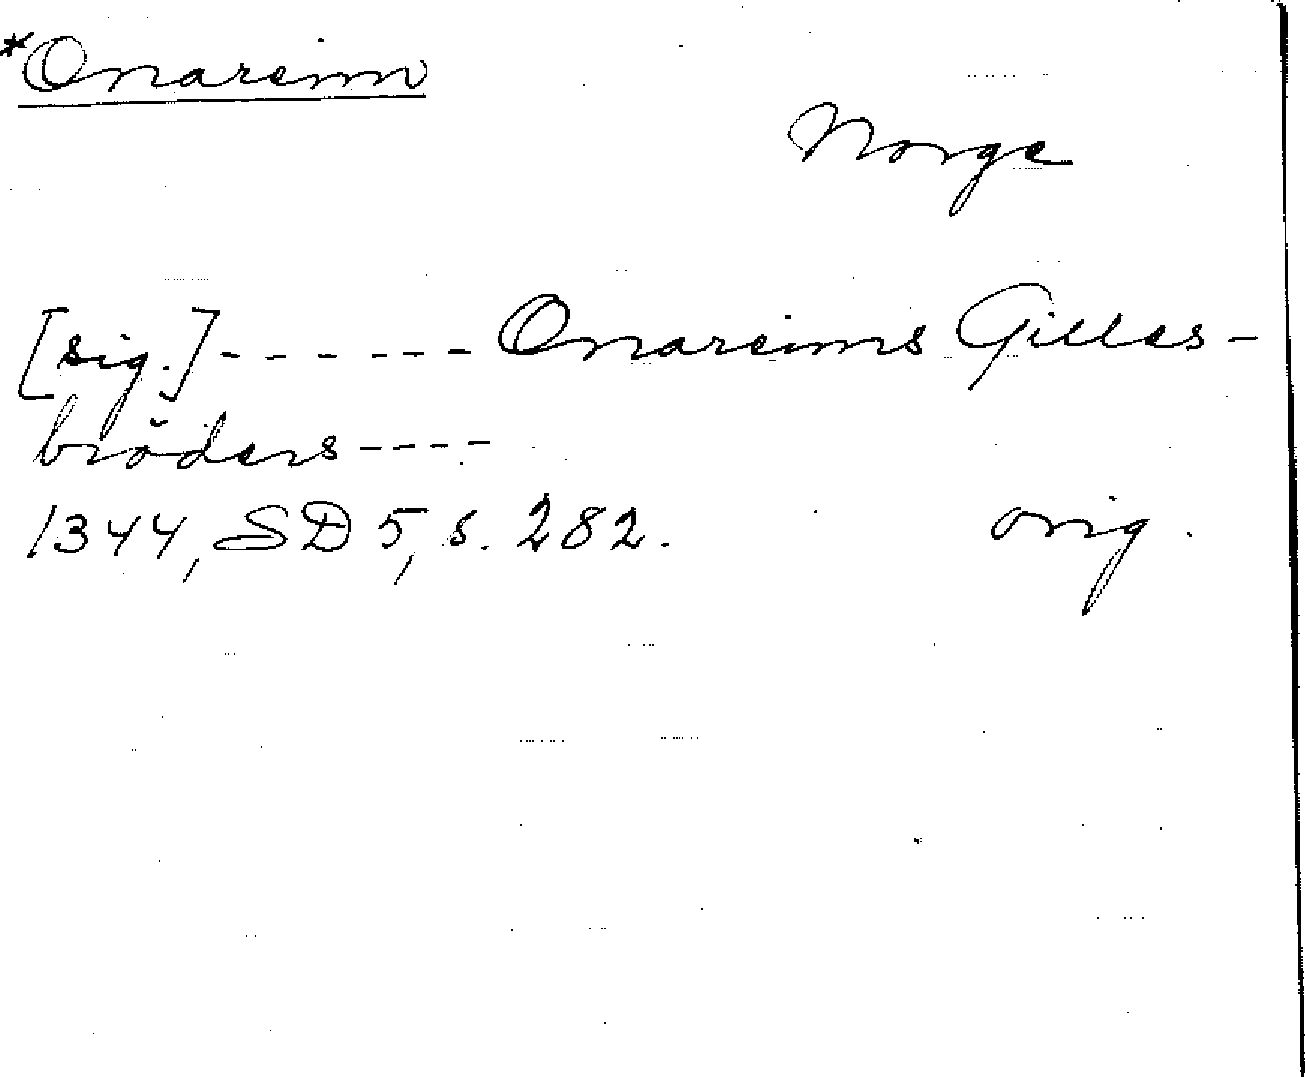 *Onareim
Norge
[sig.]------Onareims Gilles-
bröders----
1344, SD 5, s. 282.
orig.